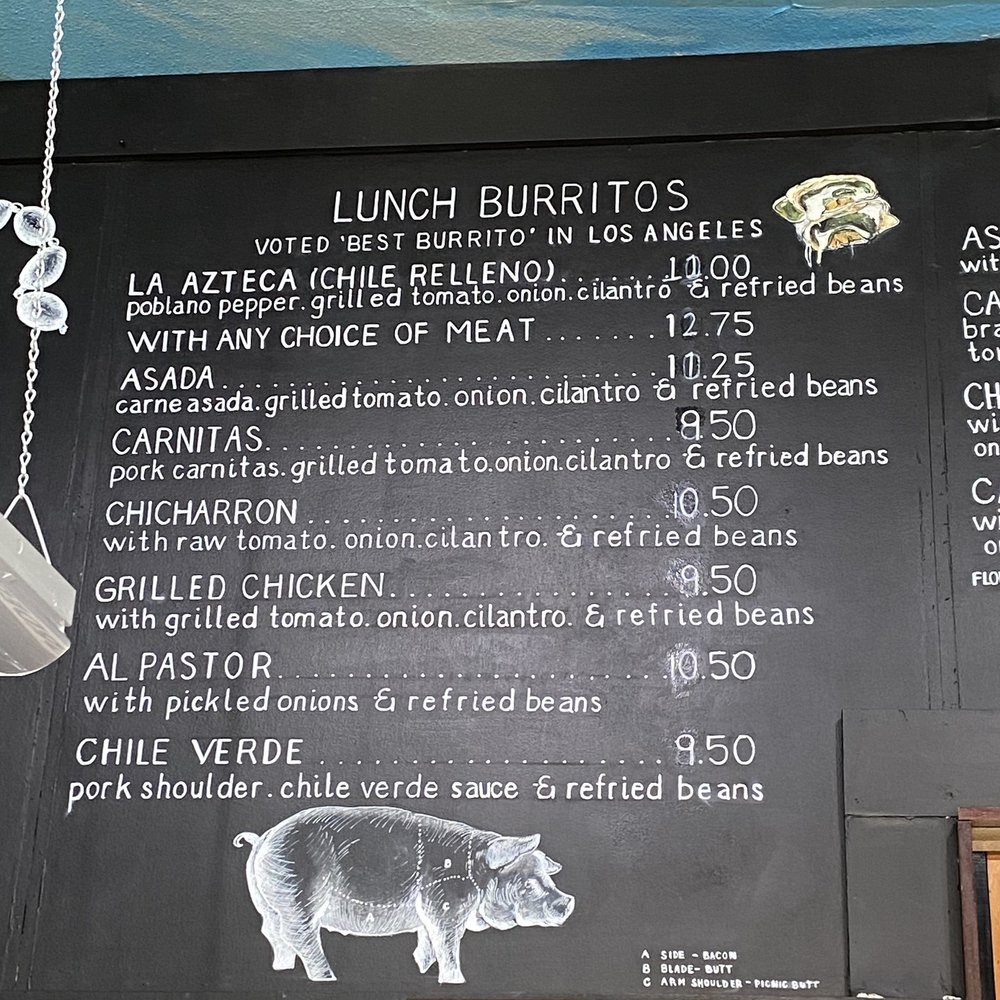 LUNCH BURRITOS
VOTED 'BEST BURRITO' IN LOS ANGELES
LA AZTECA (CHILE RELLENO)......10.00
poblano pepper.grilled tomato.onion.cilantro & refried beans
WITH ANY CHOICE OF MEAT.......12.75
ASADA........................11.25
carne asada.grilled tomato.onion.cilantro & refried beans
CARNITAS........................9.50
pork carnitas.grilled tomato.onion.cilantro & refried beans
CHICHARRON....................10.50
with raw tomato. onion.cilantro. & refried beans
GRILLED CHICKEN................9.50
with grilled tomato.onion.cilantro. & refried beans
AL PASTOR.....................10.50
with pickled onions & refried beans
CHILE VERDE..................9.50
pork shoulder.chile verde sauce & refried beans
B
A
C
A SIDE - BACON
B BLADE- BUTT
C ARM SHOULDER - PICNIC BUTT
AS
wit
CA
bra
to
CH
wi
on
C
w
o
FLO